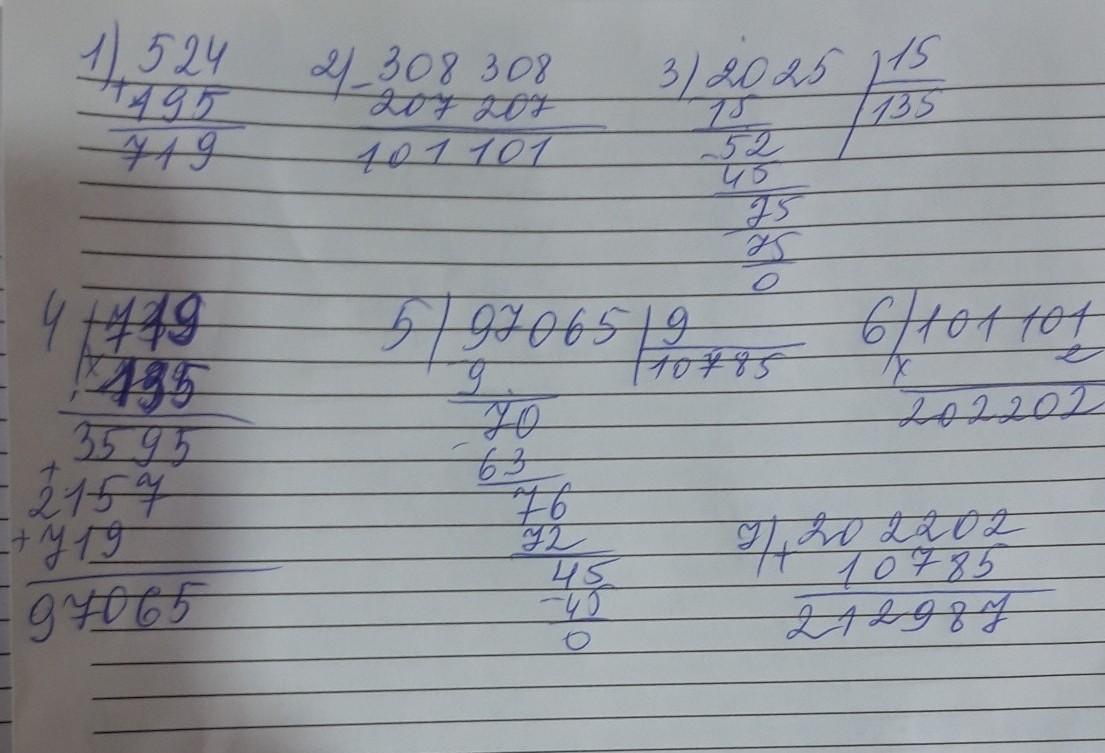 1) 524
+ 195
719
2) - 308 308
207 207
101 101
3) 2025 | 15
15 | 135
- 52
45
75
75
0
4) 719
x 135
3595
+ 2157
+ 719
97065
5) 97065 | 9
- 9 | 10785
70
- 63
76
72
45
- 45
0
6) 101 101
x 2
202202
7) + 202202
10785
212987